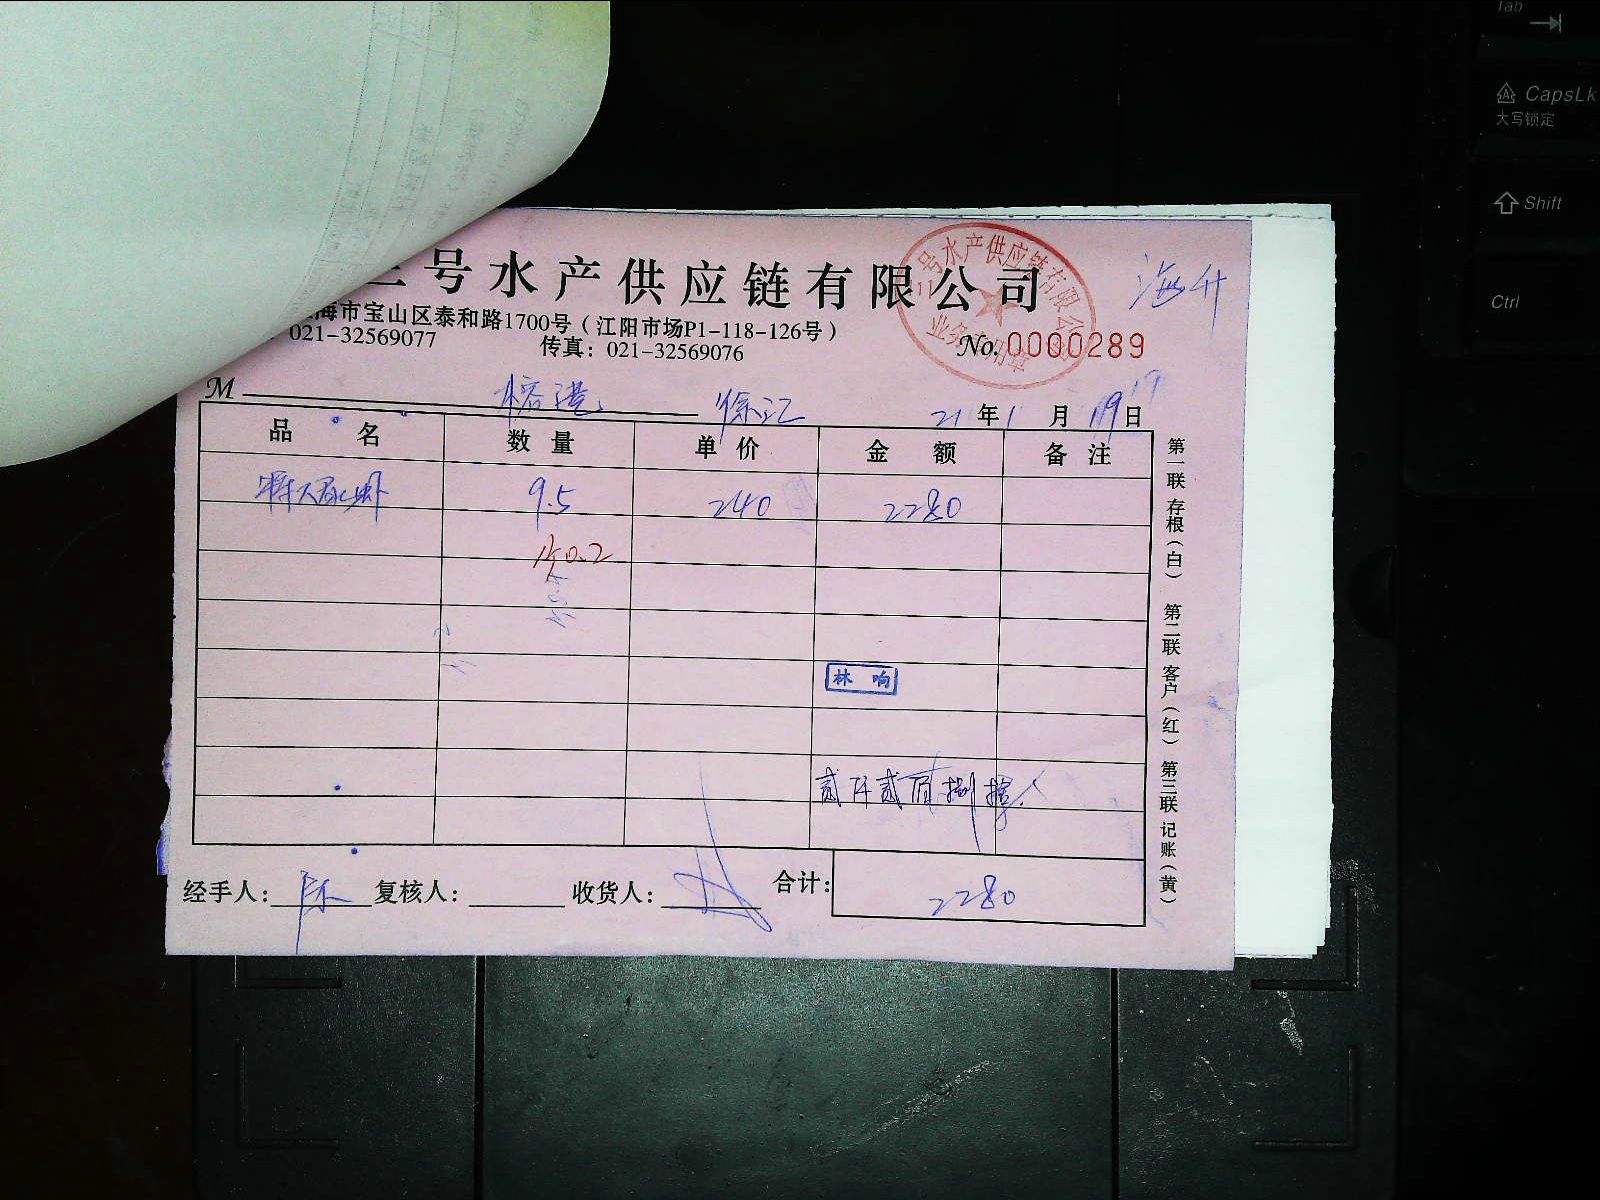 三号水产供应链有限公司
海市宝山区泰和路1700号（江阳市场P1-118-126号）
021-32569077 传真：021-32569076
No. 0000289
海升
M 榕港 徐汇 21年1月19日
品名 数量 单价 金额 备注
9.5 240 2280
0.2
林响
贰仟贰佰捌拾
经手人： 陈 复核人： 收货人： 合计： 2280
第一联 存根（白） 第二联 客户（红） 第三联 记账（黄）
业务专用章
Tab
CapsLk
大写锁定
Shift
Ctrl